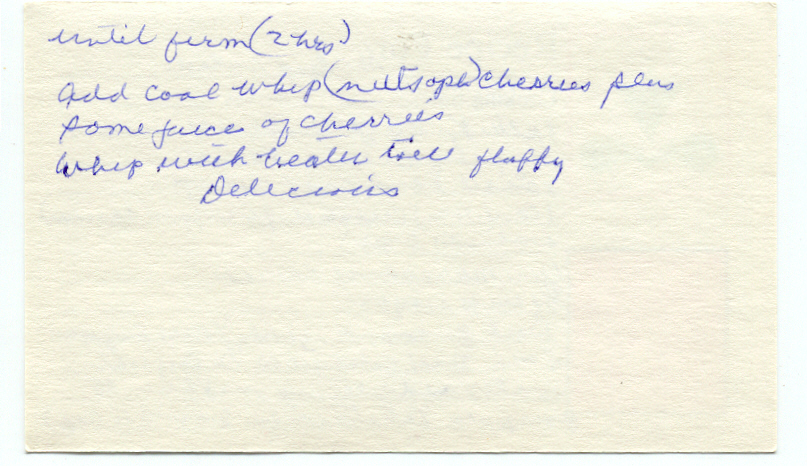 until firm (2 hrs)
Add cool whip (nuts opt) cherries plus
some juice of cherries
Whip with beater till fluffy
Delicious